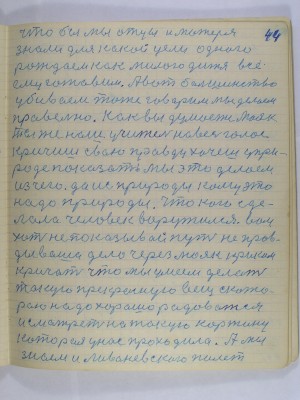 44
что бы мы отцы и матеря
знали для какой цели одного
рождаем как милого дитя все
ему готовим. А вот большинство
убиваем тоже говорим мы делаем
правельно. Как вы думаете Маяк
ты же наш учител на весь голос
кричиш свою правду хочеш у при-
роде показать мы это делаем
из чего. да из природы кому это
надо природы. Что кого сде-
лала человек варужился. вам
хот не показывай пут не прав-
для ваша дело через маяк
кричат что мы умеем делат
такую прекрасную вещ
надо хорошо радоватся
и сматрет на такую картину
которая у нас проходила. А мы
знаем и Ливаневского полет